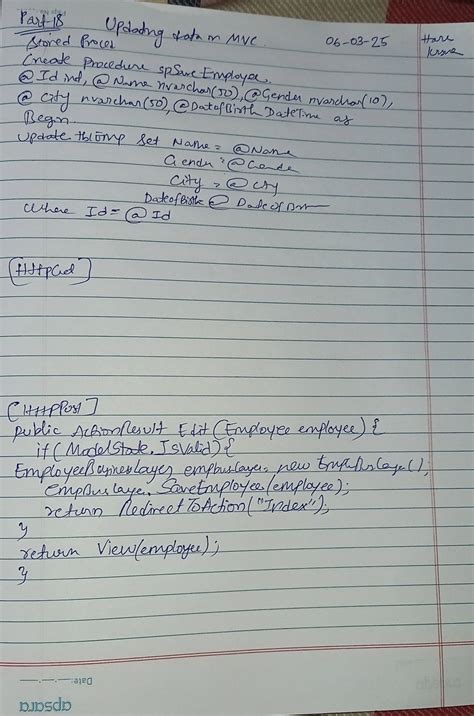 Part-18 Updating data in MVC 06-03-25 Hare
Stored Proces Krsna
Create Procedure spSaveEmployee,
@Id int, @Name nvarchar(50), @Gender nvarchar(10),
@ City nvarchar(50), @DateofBirth DateTime as
Begin
Update tblEmp Set Name = @Name
Gender = @Gende
City = @ City
DateofBirth @ DateOfBirth
Where Id = @Id
[HttpGet]
[HttpPost]
public ActionResult Edit (Employee employee) {
if (ModelState.IsValid) {
EmployeeBusinessLayer empbuslayer = new EmpBusLayer();
EmpBusLaye. SaveEmployee(employee);
return RedirectToAction("Index");
}
return View(employee);
}
Date:
apsara